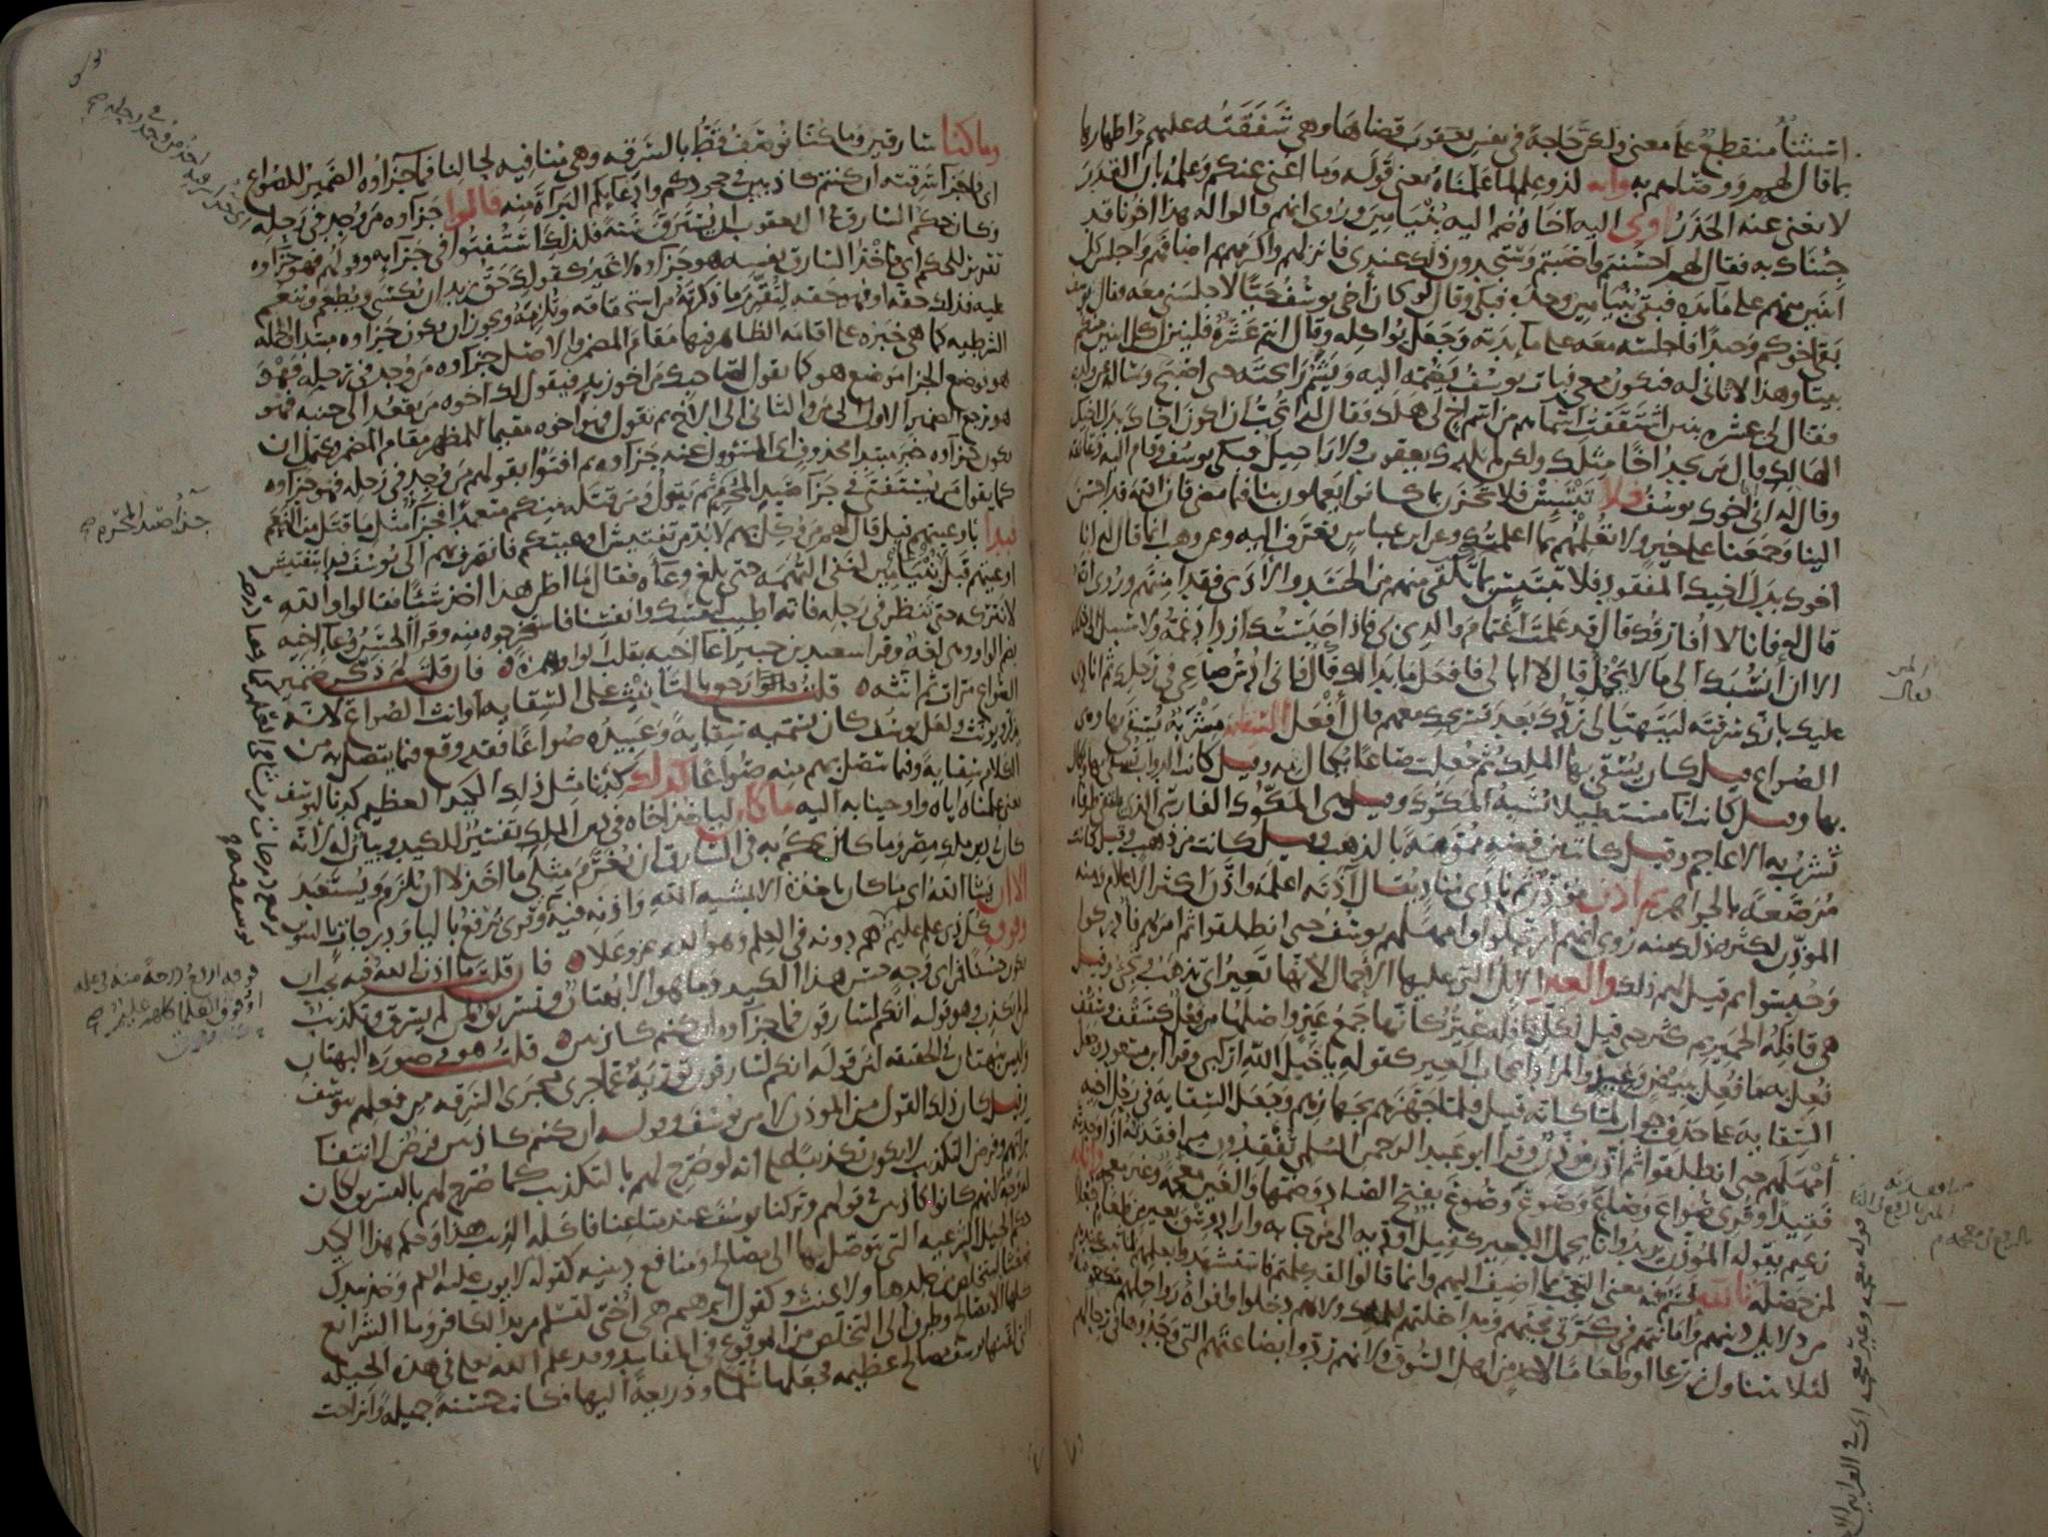 استثناء منقطع على معنى ولكن حاجة في نفس يعقوب قضاها وهي شفقته عليهم واظهارها
بما قال لهم ووصاهم به وانه لذو علم لما علمناه يعني قوله وما اغني عنكم وعلمه بان القدر
لا يغني عنه الحذر اوى اليه اخاه ضم اليه بنيامين وروى انهم قالوا له هذا اخونا قد
جئناك به فقال لهم احسنتم واصبتم وستجدون ذلك عندي فانزلهم واكرمهم ثم اضافهم واجلس كل
اثنين منهم على مائدة فبقي بنيامين وحده فبكى وقال لو كان اخي يوسف حيا لاجلسني معه فقال يوسف
بقي اخوكم وحيدا فاجلسه معه على مائدته وجعل يواكله وقال انتم عشرة فلينزل كل اثنين منكم
بيتا وهذا لا ثاني له فيكون معي فبات يوسف يضمه اليه ويشم رائحته حتى اصبح وساله عن ولده
فقال لي عشرة بنين اشتققت اسماءهم من اسم اخ لي هلك فقال له اتحب ان اكون اخاك بدل اخيك
الهالك قال من يجد اخا مثلك ولكن لم يلدك يعقوب ولا راحيل فبكى يوسف وقام اليه وعانقه
وقال له اني انا اخوك يوسف فلا تبتئس فلا تحزن بما كانوا يعملون بنا فيما مضى فان الله قد احسن
الينا وجمعنا على خير ولا تعلمهم بما اعلمتك وعن ابن عباس تعرف اليه وعن وهب انما قال له انا
اخوك بدل اخيك المفقود فلا تبتئس بما تلقى منهم من الحسد والاذى فقد امنتهم وروى انه
قال له فانا لا افارقك قال قد علمت اغتمام والدي بي فاذا حبستك ازداد غمه ولا سبيل الى ذلك
الا ان انسبك الى ما لا يجمل قال لا ابالي فافعل ما بدا لك قال فاني ادس صاعي في رحلك ثم انادي
عليك بانك سرقته ليتهيا لي ردك بعد تسريحك معهم قال افعل السقاية مشربة يسقى بها وهي
الصواع قيل كان يسقى بها الملك ثم جعلت صاعا يكال به وقيل كانت الدواب تسقى بها ويكال
بها وقيل كانت اناء مستطيلا يشبه المكوك وقيل هي المكوك الفارسي الذي يلتقي طرفاه
تشرب به الاعاجم وقيل كانت من فضة مموهة بالذهب وقيل كانت من ذهب وقيل كانت
مرصعة بالجواهر ثم اذن مؤذن ثم نادى مناد يقال آذنه اعلمه واذن اكثر الاعلام ومنه
المؤذن لكثرة ذلك منه روى انهم ارتحلوا وامهلهم يوسف حتى انطلقوا ثم امر بهم فادركوا
وحبسوا ثم قيل لهم ذلك والعير الابل التي عليها الاحمال لانها تعير اي تذهب وتجيء وقيل
هي قافلة الحمير ثم كثر حتى قيل لكل قافلة عير كانها جمع عير واصلها فعل كسقف وسقف
فعل به ما فعل ببيض وعيد والمراد اصحاب العير كقوله يا خيل الله اركبي وقرا ابن مسعود وجعل
السقاية على حذف جواب لما كانه قيل فلما جهزهم بجهازهم وجعل السقاية في رحل اخيه
امهلهم حتى انطلقوا ثم اذن مؤذن وقرا ابو عبد الرحمن السلمي تفقدون من افقدته اذا وجدته
فقيدا وقرى صواع وصاع وصوع وصوع بفتح الصاد وضمها والغين معجمة وغير معجمة وانا به
زعيم يقوله المؤذن يريد وانا بحمل البعير كفيل اؤديه الى من جاء به واراد وسق بعير من طعام جعلا
لمن حصله تالله قسم فيه معنى التعجب مما اضيف اليهم وانما قالوا لقد علمتم فاستشهدوا بعلمهم لما ثبت عندهم
من دلائل دينهم وامانتهم في كرتي مجيئهم ومداخلتهم للملك ولانهم دخلوا وافواه رواحلهم مكعومة
لئلا تتناول زرعا او طعاما لاحد من اهل السوق ولانهم ردوا بضاعتهم التي وجدوها في رحالهم
وما كنا سارقين وما كنا نوصف قط بالسرقة وهي منافية لحالنا فما جزاؤه الضمير للصواع
اي فما جزا سرقته ان كنتم كاذبين في جحودكم وادعائكم البراءة منه قالوا جزاوه من وجد في رحله
وكان حكم السارق في ال يعقوب ان يسترق سنة فلذلك استفتوا في جزائه وقولهم فهو جزاوه
تقرير للحكم اي فاخذ السارق نفسه هو جزاوه لا غير كقولك حق زيد ان يكسى ويطعم وينعم
عليه فذلك حقه او فهو حقه لتقرر ما ذكرته من استحقاقه وتلزمه ويجوز ان يكون جزاوه مبتدا والجملة
الشرطية كما هي خبره على اقامة الظاهر فيها مقام المضمر والاصل جزاوه من وجد في رحله فهو
هو فوضع الجزا موضع هو كما يقول لصاحبك من اخو زيد فيقول لك اخوه من يقعد الى جنبه فهو
هو يرجع الضمير الاول الى من والثاني الى الاخ ثم يقول فهو اخوه مقيما للمظهر مقام المضمر ويحتمل ان
يكون جزاوه خبر مبتدا محذوف اي المسئول عنه جزاوه ثم افتوا بقولهم من وجد في رحله فهو جزاوه
كما يقول من يستفتى في جزا صيد المحرم ثم يقول ومن قتله منكم متعمدا فجزاء مثل ما قتل من النعم
فبدا باوعيتهم قيل قال لهم من وكل بهم لا بد من تفتيش اوعيتكم فانصرف بهم الى يوسف فبدا بتفتيش
اوعيتهم قبل بنيامين لنفي التهمة حتى بلغ وعاءه فقال ما اظن هذا اخذ شيئا فقالوا والله
لا نتركه حتى تنظر في رحله فانه اطيب لنفسك وانفسنا فاستخرجوه منه وقرا الحسن وعاء اخيه
بضم الواو وهي لغة وقرا سعيد بن جبير اعاء اخيه بقلب الواو همزة ه فان قلت لم ذكر ضمير
الصواع مرات ثم انثه ه قلت قالوا رجع بالتانيث على السقاية او انث الصواع لانه
يذكر ويونث ولعل يوسف كان يسميه سقاية وعبيده صواعا فقد وقع فيما يتصل به من
الكلام سقاية وفيما يتصل بهم منه صواعا كذلك كدنا مثل ذلك الكيد العظيم كدنا ليوسف
يعني علمناه اياه واوحينا به اليه ما كان لياخذ اخاه في دين الملك تفسير للكيد وبيان له لانه
كان في دين ملك مصر وما كان يحكم به في السارق ان يغرم مثلي ما اخذ لا ان يلزم ويستعبد
الا ان يشا الله اي ما كان ياخذه الا بمشيه الله واذنه فيه وقرى يرفع باليا ودرجات بالتنوين
وفوق كل ذي علم عليم هم دونه في العلم وهو الله عز وعلا ه فان قلت ما اذن الله فيه يجب ان
يكون حسنا فمن اي وجه حسن هذا الكيد وما هو الا بهتان وتسريق لمن لم يسرق وتكذيب
لمن لم يكذب وهو قوله انكم لسارقون فما جزاوه ان كنتم كاذبين ه قلت هو في صورة البهتان
وليس ببهتان في الحقيقه لان قوله انكم لسارقون تورية عما جرى مجرى السرقه من فعلهم بيوسف
وقيل كان ذلك القول من المؤذن لا من يوسف وقوله ان كنتم كاذبين فرض لانتفا
براتهم وفرض التكذيب لا يكون تكذيبا على انه لو صرح لهم بالتكذيب كما صرح لهم بالتسريق لكان
له وجه لانهم كانوا كاذبين في قولهم وتركنا يوسف عند متاعنا فاكله الذيب هذا وحكم هذا الكيد
حكم الحيل الشرعيه التي يتوصل بها الى مصالح ومنافع دينيه كقوله لايوب عليه السلم وخذ بيدك
ضغثا ليتخلص من جلدها ولا يحنث وكقول ابرهيم هي اختي لتسلم من يد الكافر وما الشرائع
كلها الا مصالح وطرق الى التخلص من الوقوع في المفاسد وقد علم الله تعالى في هذه الحيله
التي لقنها يوسف مصالح عظيمه فجعلها سلما وذريعة اليها فكانت حسنة جميله وانزاحت
جزاء صيد المحرم
فوقه ارفع درجة منه في علمه
او فوق العلما كلهم عليم